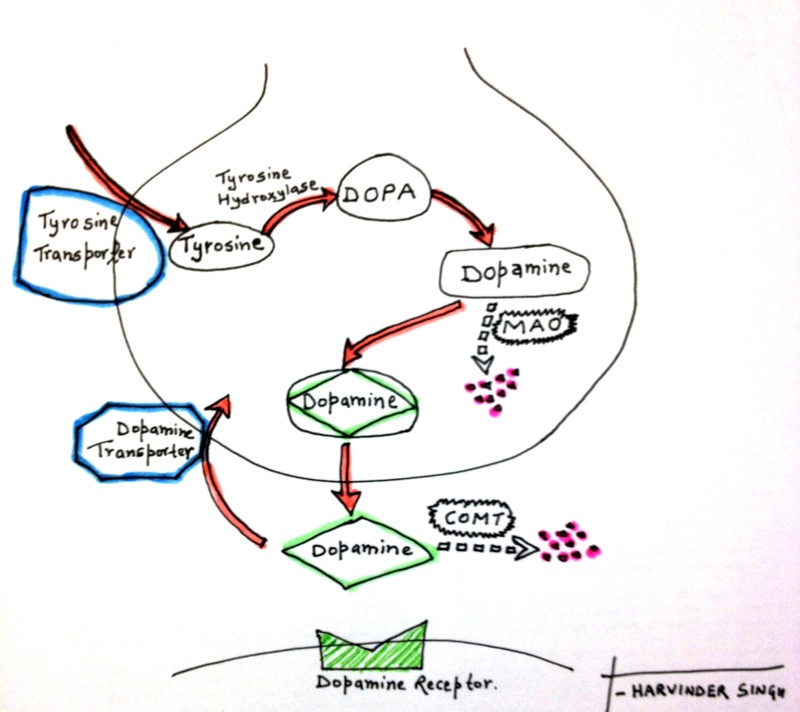 Tyrosine
Hydroxylase
DOPA
Tyrosine
Transporter
Tyrosine
Dopamine
MAO
Dopamine
Dopamine
Transporter
COMT
Dopamine
Dopamine Receptor.
- HARVINDER SINGH